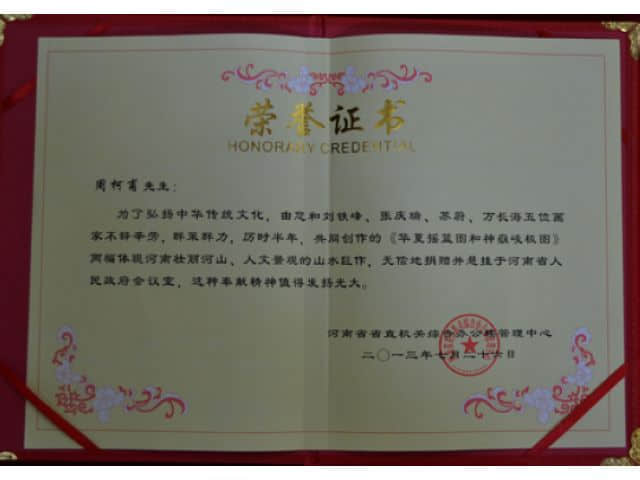 荣誉证书
HONORARY CREDENTIAL
周柯甫先生：
为了弘扬中华传统文化，由您和刘铁峰、张庆瑜、苏蔚、万长海五位画
家不辞辛劳，群策群力，历时半年，共同创作的《华夏摇篮图和神嶽峻极图》
两幅体现河南壮丽河山、人文景观的山水巨作，无偿地捐赠并悬挂于河南省人
民政府会议室，这种奉献精神值得发扬光大。
河南省省直机关综合办公楼管理中心
二〇一三年七月二十六日